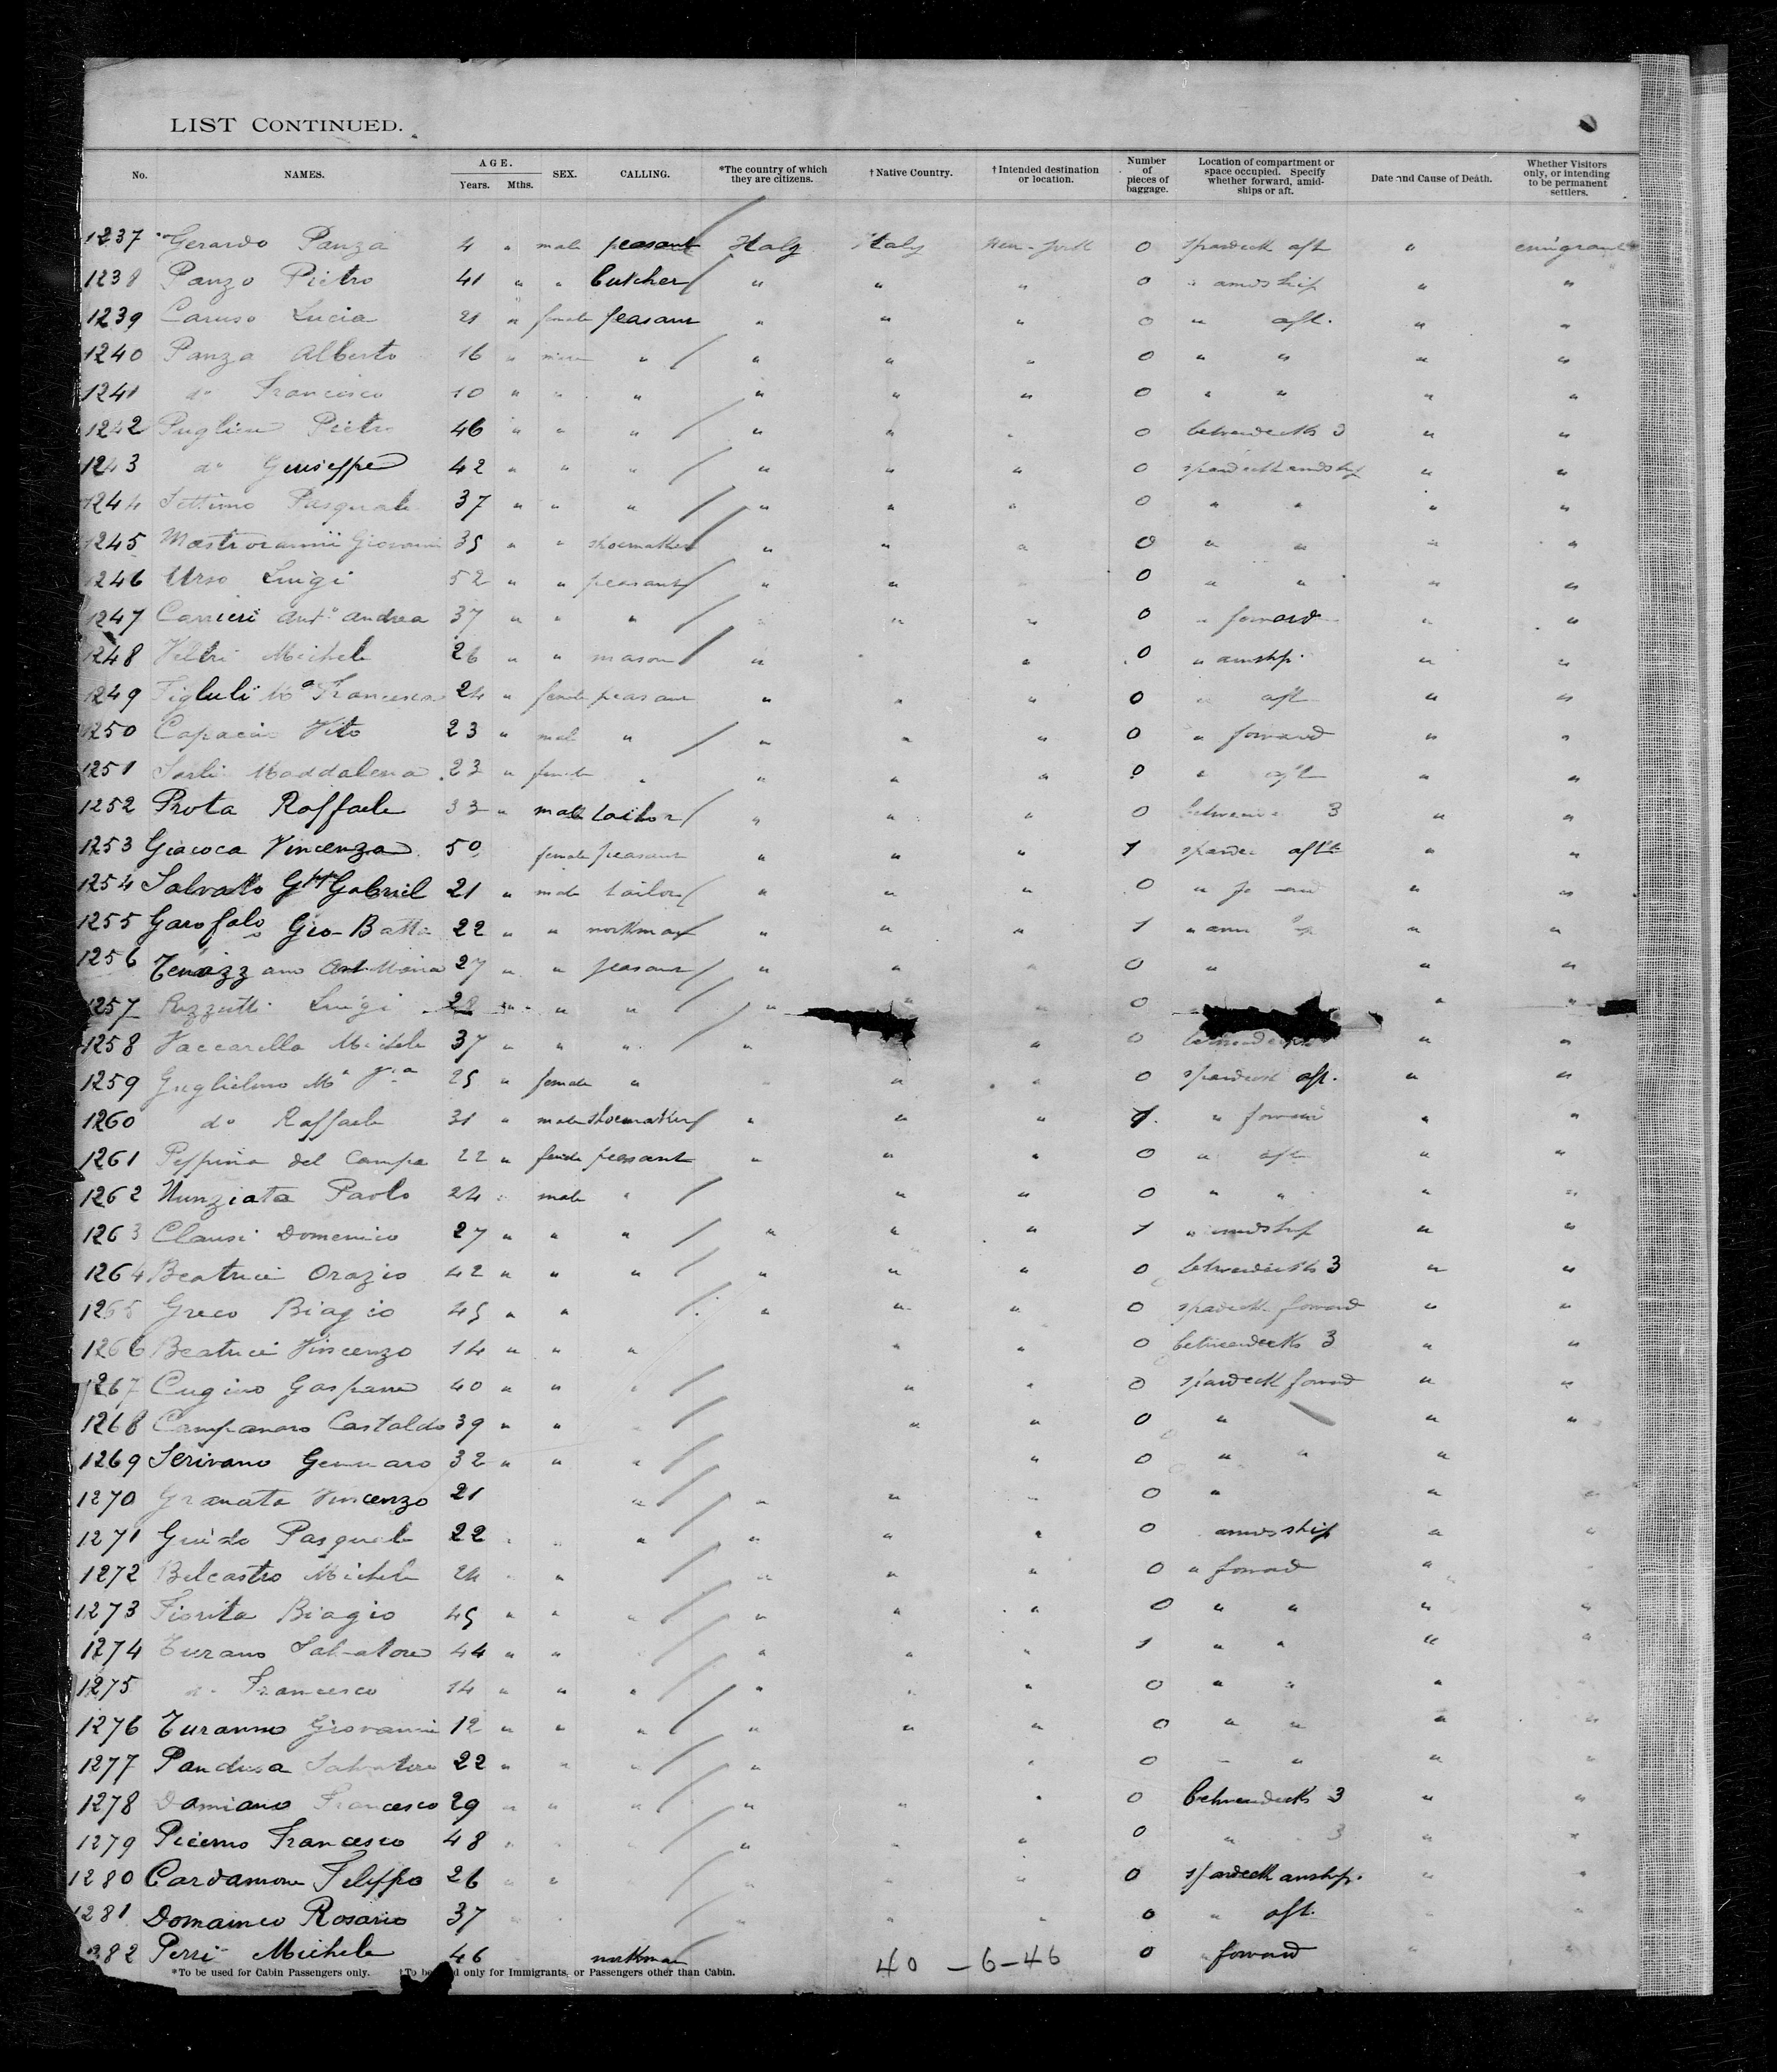 LIST CONTINUED.
No. NAMES. AGE. Years. Mths. SEX. CALLING. *The country of which they are citizens. †Native Country. †Intended destination or location. Number of pieces of baggage. Location of compartment or space occupied. Specify whether forward, amidships or aft. Date and Cause of Death. Whether Visitors only, or intending to be permanent settlers.
1237 Gerardo Panza 4 " male peasant Italy Italy New-York 0 spardeck aft " emigrant
1238 Panzo Pietro 41 " " butcher " " " 0 " amidship " "
1239 Caruso Lucia 21 " female peasant " " " 0 " aft. " "
1240 Panza Alberto 16 " male " " " " 0 " " " "
1241 do Francesco 10 " " " " " " 0 " " " "
1242 Pietro 46 " " " " " " 0 betweendecks 3 " "
1243 do Giuseppe 42 " " " " " " 0 spardeck amidship " "
1244 Settimo Pasquale 37 " " " " " " 0 " " " "
1245 Giovanni 35 " " shoemaker " " " 0 " " " "
1246 Urso Luigi 52 " " peasant " " 0 " " " "
1247 Carrieri Anto Andrea 37 " " " " " " 0 " forward " "
1248 Veltri Michele 26 " " mason " " 0 " amship. " "
1249 Figluli Ma Francesca 24 " female peasant " " " 0 " aft " "
1250 Vito 23 " male " " " " 0 " forward " "
1251 Sarli Maddalena 23 " female " " " " 0 " aft " "
1252 Prota Raffaele 33 " male tailor " " " 0 3 " "
1253 Giacoca Vincenza 50 female peasant " " " 1 aft " "
1254 Salvato Gabriel 21 " male tailor " " " 0 " " "
1255 Garofalo Gio-Batta 22 " " workman " " " 1 " " "
1256 27 " " peasant " " " 0 " " "
1257 Rizzutti Luigi 28 " " " " " " 0 " "
1258 Vaccarella Michele 37 " " " " " 0 " "
1259 Guglielmo Ma 25 " female " " " " 0 spardeck aft. " "
1260 do Raffaele 31 " male shoemaker " " " 1 " forward " "
1261 Peppina del Campo 22 " female peasant " " " 0 " aft " "
1262 Nunziata Paolo 24 " male " " " 0 " " " "
1263 Clausi Domenico 27 " " " " " " 1 " amidship " "
1264 Beatrice Orazio 42 " " " " " " 0 betweendecks 3 " "
1265 Greco Biagio 45 " " " " " 0 spardeck forward " "
1266 Beatrice Vincenzo 14 " " " " " 0 betweendecks 3 " "
1267 Cugino Gaspare 40 " " " " " 0 spardeck forward " "
1268 Campanaro Castaldo 39 " " " " 0 " " "
1269 Scrivano Gennaro 32 " " " " 0 " " "
1270 Granata Vincenzo 21 " " " " 0 " " "
1271 Guido Pasquale 22 " " " " " 0 amidship " "
1272 Belcastro Michele 24 " " " " " 0 " forward " "
1273 Fiorita Biagio 45 " " " " " " 0 " " " "
1274 Turano Salvatore 44 " " " " " 1 " " " "
1275 do Francesco 14 " " " " " " 0 " " " "
1276 Turanno Giovanni 12 " " " " " " 0 " " " "
1277 Pandusa Salvatore 22 " " " " " 0 " " " "
1278 Damiano Francesco 29 " " " " " " 0 betweendecks 3 " "
1279 Picerno Francesco 48 " " " " 0 " 3 " "
1280 Cardamone Filippo 26 " " " " 0 spardeck amship. " "
1281 Domainco Rosario 37 " " " " 0 " aft. " "
82 Perri Michele 46 workman 0 " forward " "
40 - 6 - 46
*To be used for Cabin Passengers only. †To be only for Immigrants, or Passengers other than Cabin.